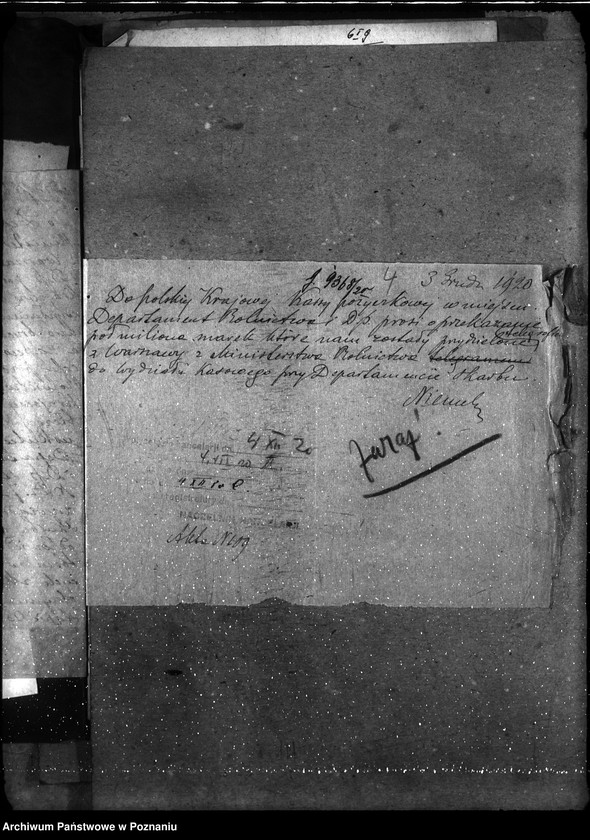 619
J. 9368/20 4 3 Grudz 1920
Do Polskiej Krajowej Kasy pożyczkowej w miejscu.
Departament Rolnictwa i D.p. prosi o przekazanie
pół miliona marek które nam zostały przydzielone
z Warszawy z Ministerstwa Rolnictwa telegramem
do wydziału Kasowego przy Departamencie skarbu
zaraz!
4 XII 20
4. XII 20
4 XII 20
Archiwum Państwowe w Poznaniu